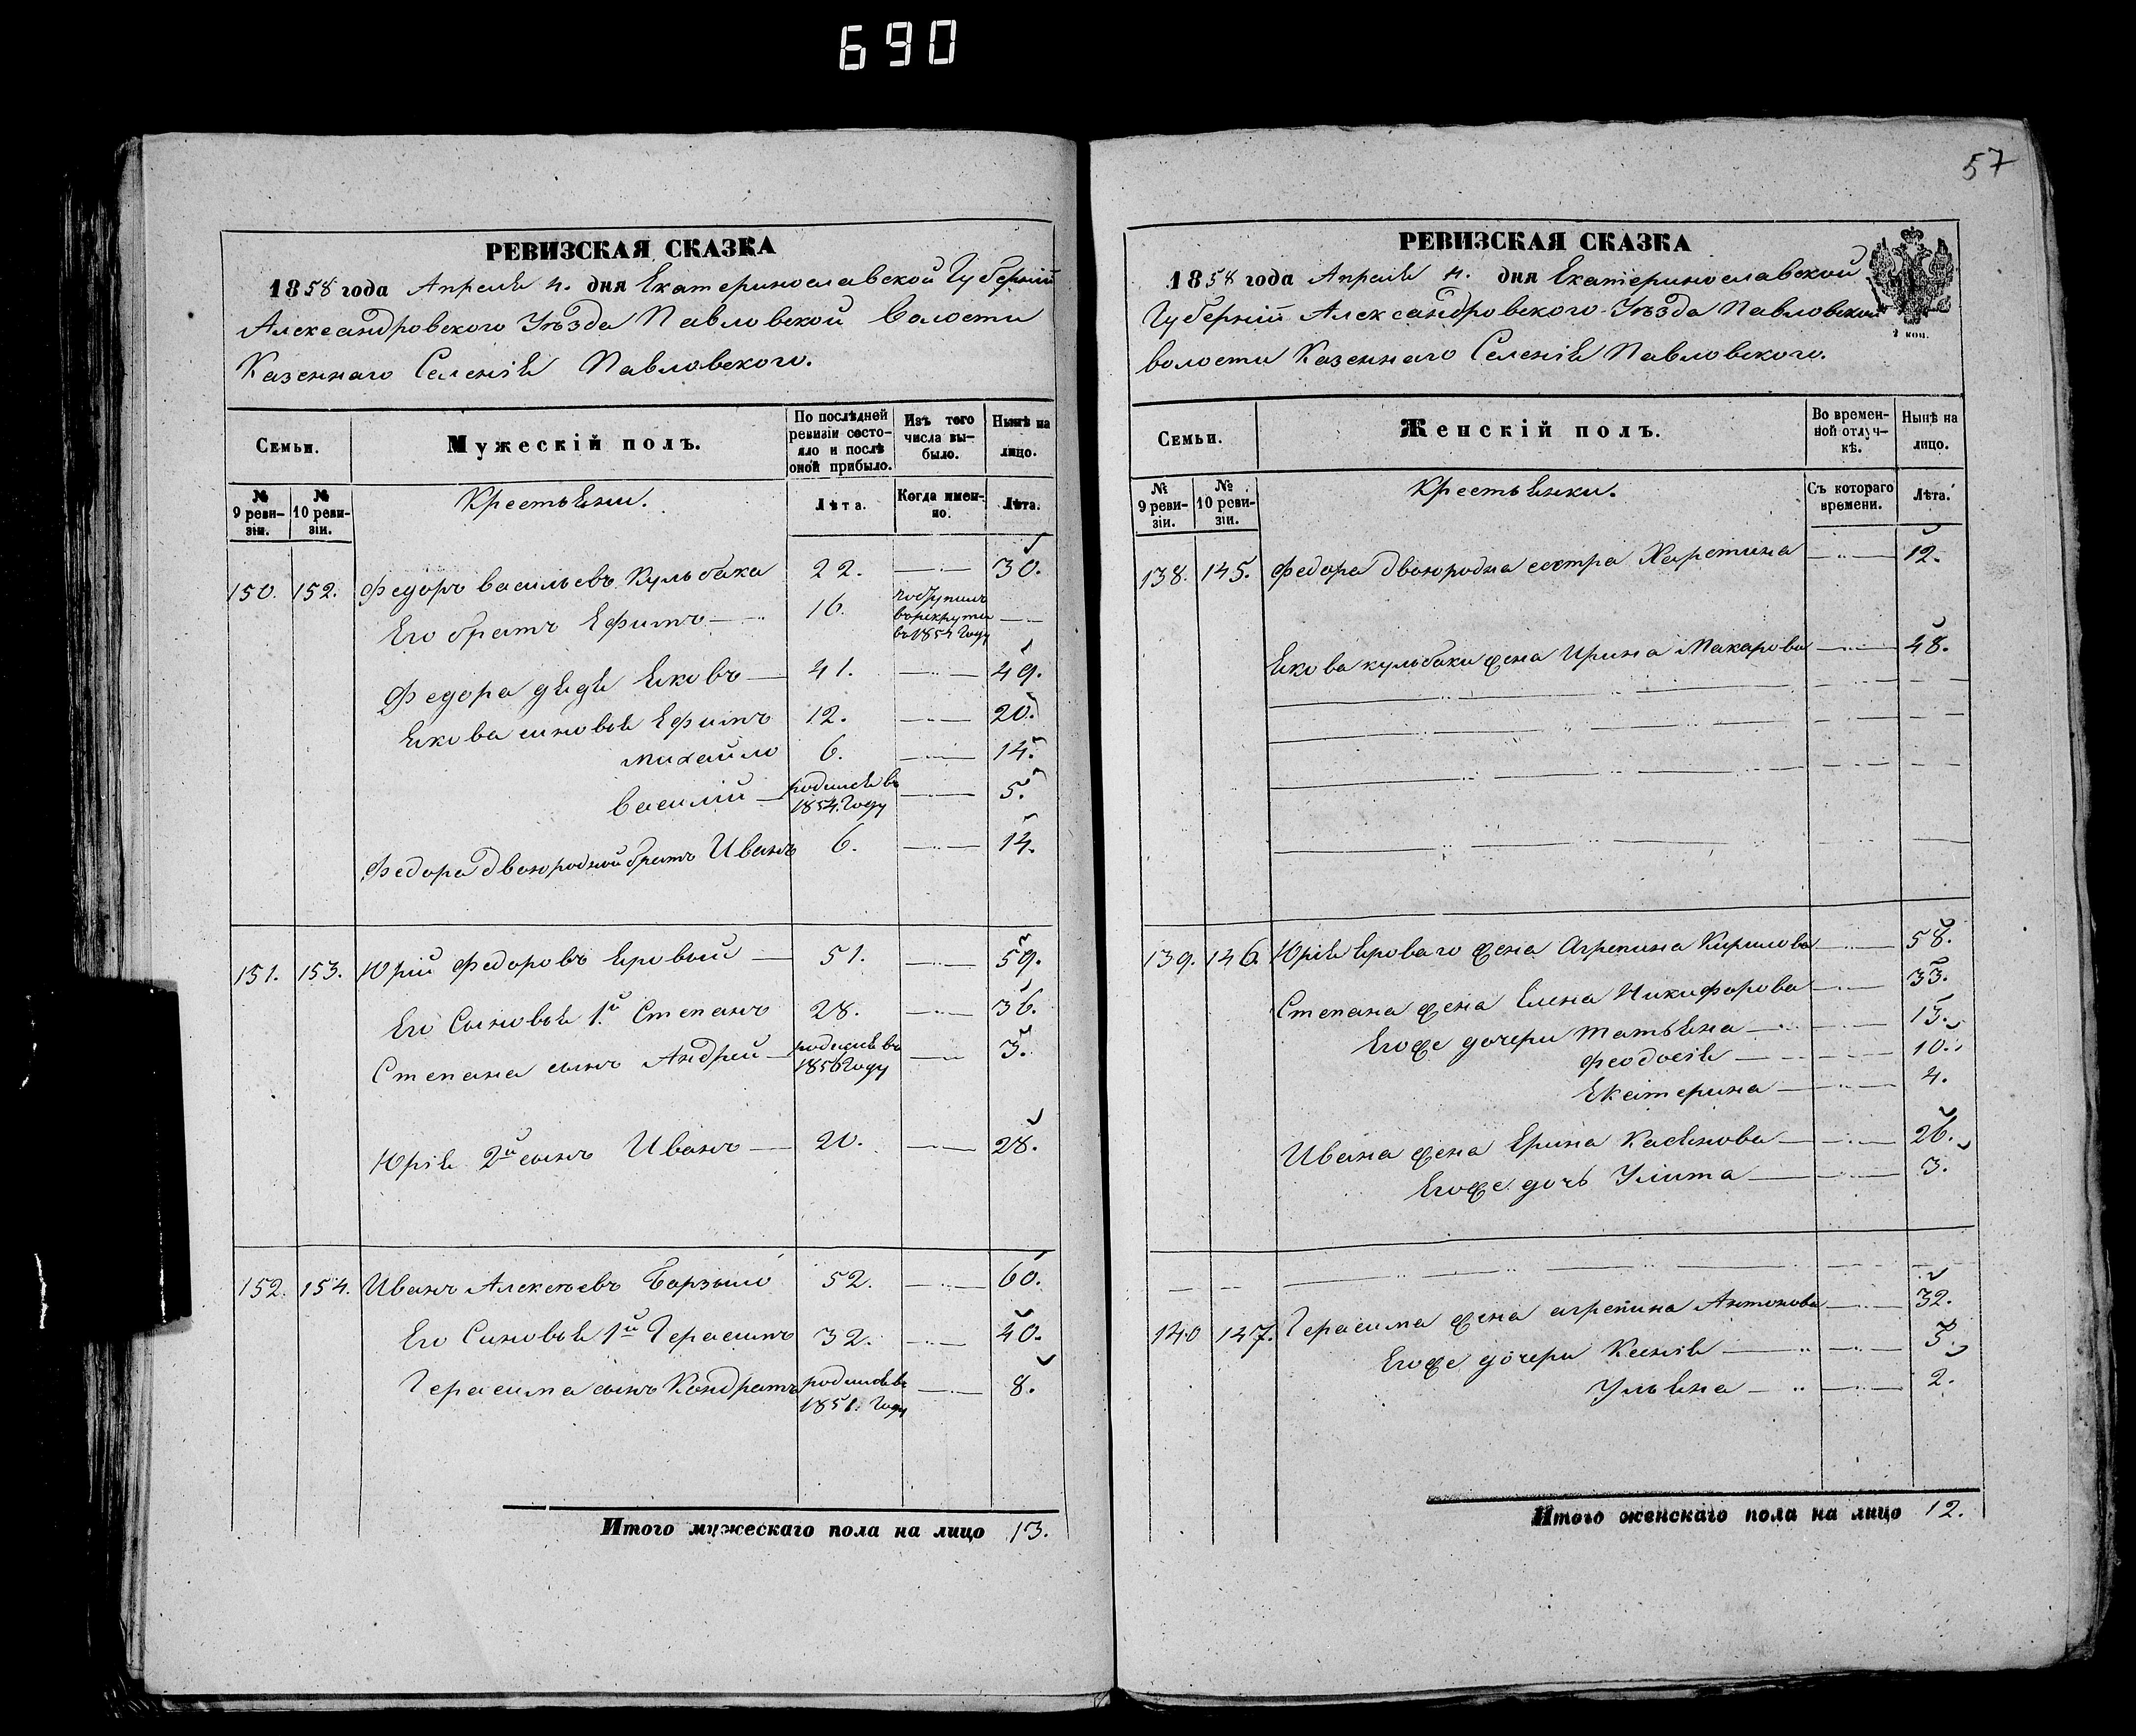 690
57
РЕВИЗСКАЯ СКАЗКА
1858 года Апреля 4. дня Екатеринославской Губерніи
Александровского Уѣзда Павловской Волости
Казеннаго Селенія Павловского.
Семьи.
Мужескій полъ.
По послѣдней ревизіи состо-яло и послѣ оной прибыло.
Изъ того числа вы-было.
Нынѣ на лицо.
№ 9 реви-зіи.
№ 10 реви-зіи.
Крестьяни.
Лѣта.
Когда имен-но.
Лѣта.
150. 152. Федоръ Васильевъ Кульбака 22. 30.
Его братъ Ефимъ 16. въ рекруты въ 1854 году
Федора дядя Яковъ 41. 49.
Якова синовья Ефимъ 12. 20.
Михайло 6. 14.
Василій родился въ 1854. Году 5.
Федора двоюродной братъ Иванъ 6. 14.
151. 153. Юрій Федоровъ Яровый 51. 59.
Его Сыновья 1й Степанъ 28. 36.
Степана сынъ Андрей родился въ 1856 Году 3.
Юрія 2й сынъ Иванъ 20. 28.
152. 154. Иванъ Алексѣевъ Борзыло 52. 60.
Его Синовья 1й Герасимъ 32. 40.
Герасима сынъ Кондратъ родился въ 1851. Году 8.
Итого мужескаго пола на лицо 13.
РЕВИЗСКАЯ СКАЗКА
1858 года Апреля 4. дня Екатеринославской
Губерніи Александровского Уѣзда Павловской
волости Казеннаго Селенія Павловского.
2 коп.
Семьи.
Женскій полъ.
Во времен-ной отлуч-кѣ.
Нынѣ на лицо.
№ 9 реви-зіи.
№ 10 реви-зіи.
Крестьянки.
Съ котораго времени.
Лѣта.
138. 145. Федора двоюродна сестра Харетина 12.
Якова кульбаки жена Ирина Макарова 48.
139. 146. Юрія Яроваго жена Агрепина Кирилова 58.
Степана жена Елена Никифорова 33.
Егоже дочери Татьяна 13.
Феодосія 10.
Екатерина 4.
Ивана жена Ирина Касянова 26.
Егоже дочь Улита 3.
140 147. Герасима жена агрепина Антонова 32.
Егоже дочери Ксенія 5.
Ульяна 2.
Итого женскаго пола на лицо 12.